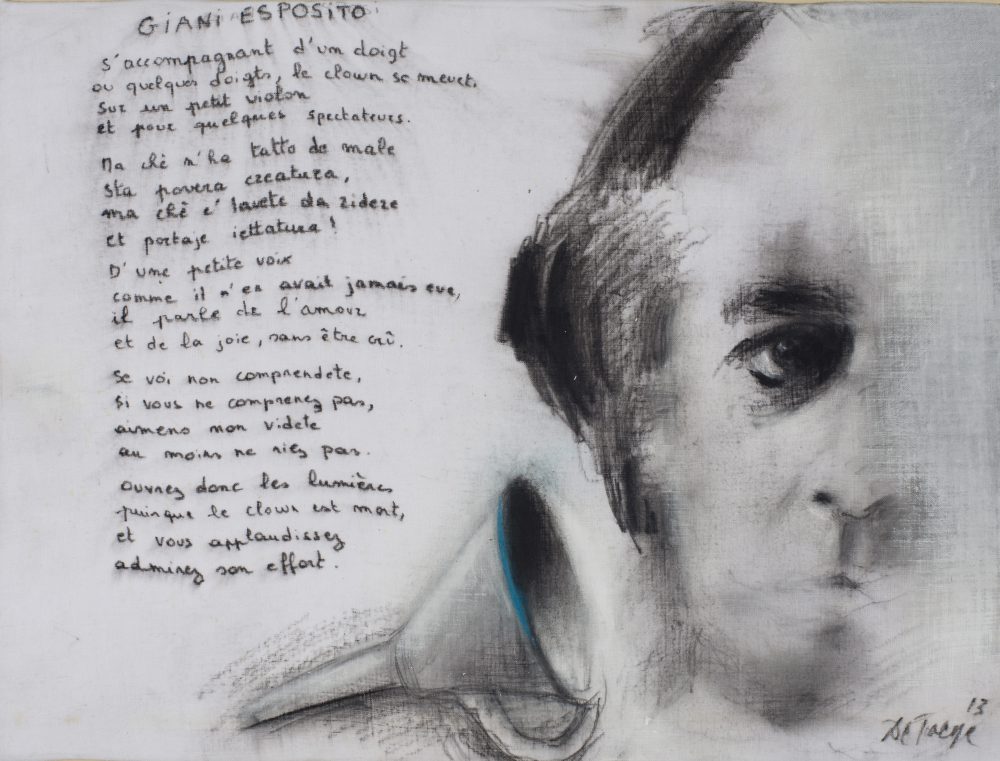 GIANI ESPOSITO
s'accompagnant d'un doigt
ou quelques doigts, le clown se meurt,
sur un petit violon
et pour quelques spectateurs.
Ma chè n'ha fatto de male
sta povera creatura,
ma chè c'lavete da ridere
et portaje iettatura!
D'une petite voix
comme il n'en avait jamais eue,
il parle de l'amour
et de la joie, sans être crû.
Se voi non comprendete,
si vous ne comprenez pas,
aimeno non videte
au moins ne riez pas.
ouvrez donc les lumières
puisque le clown est mort,
et vous applaudissez
admirez son effort.
13